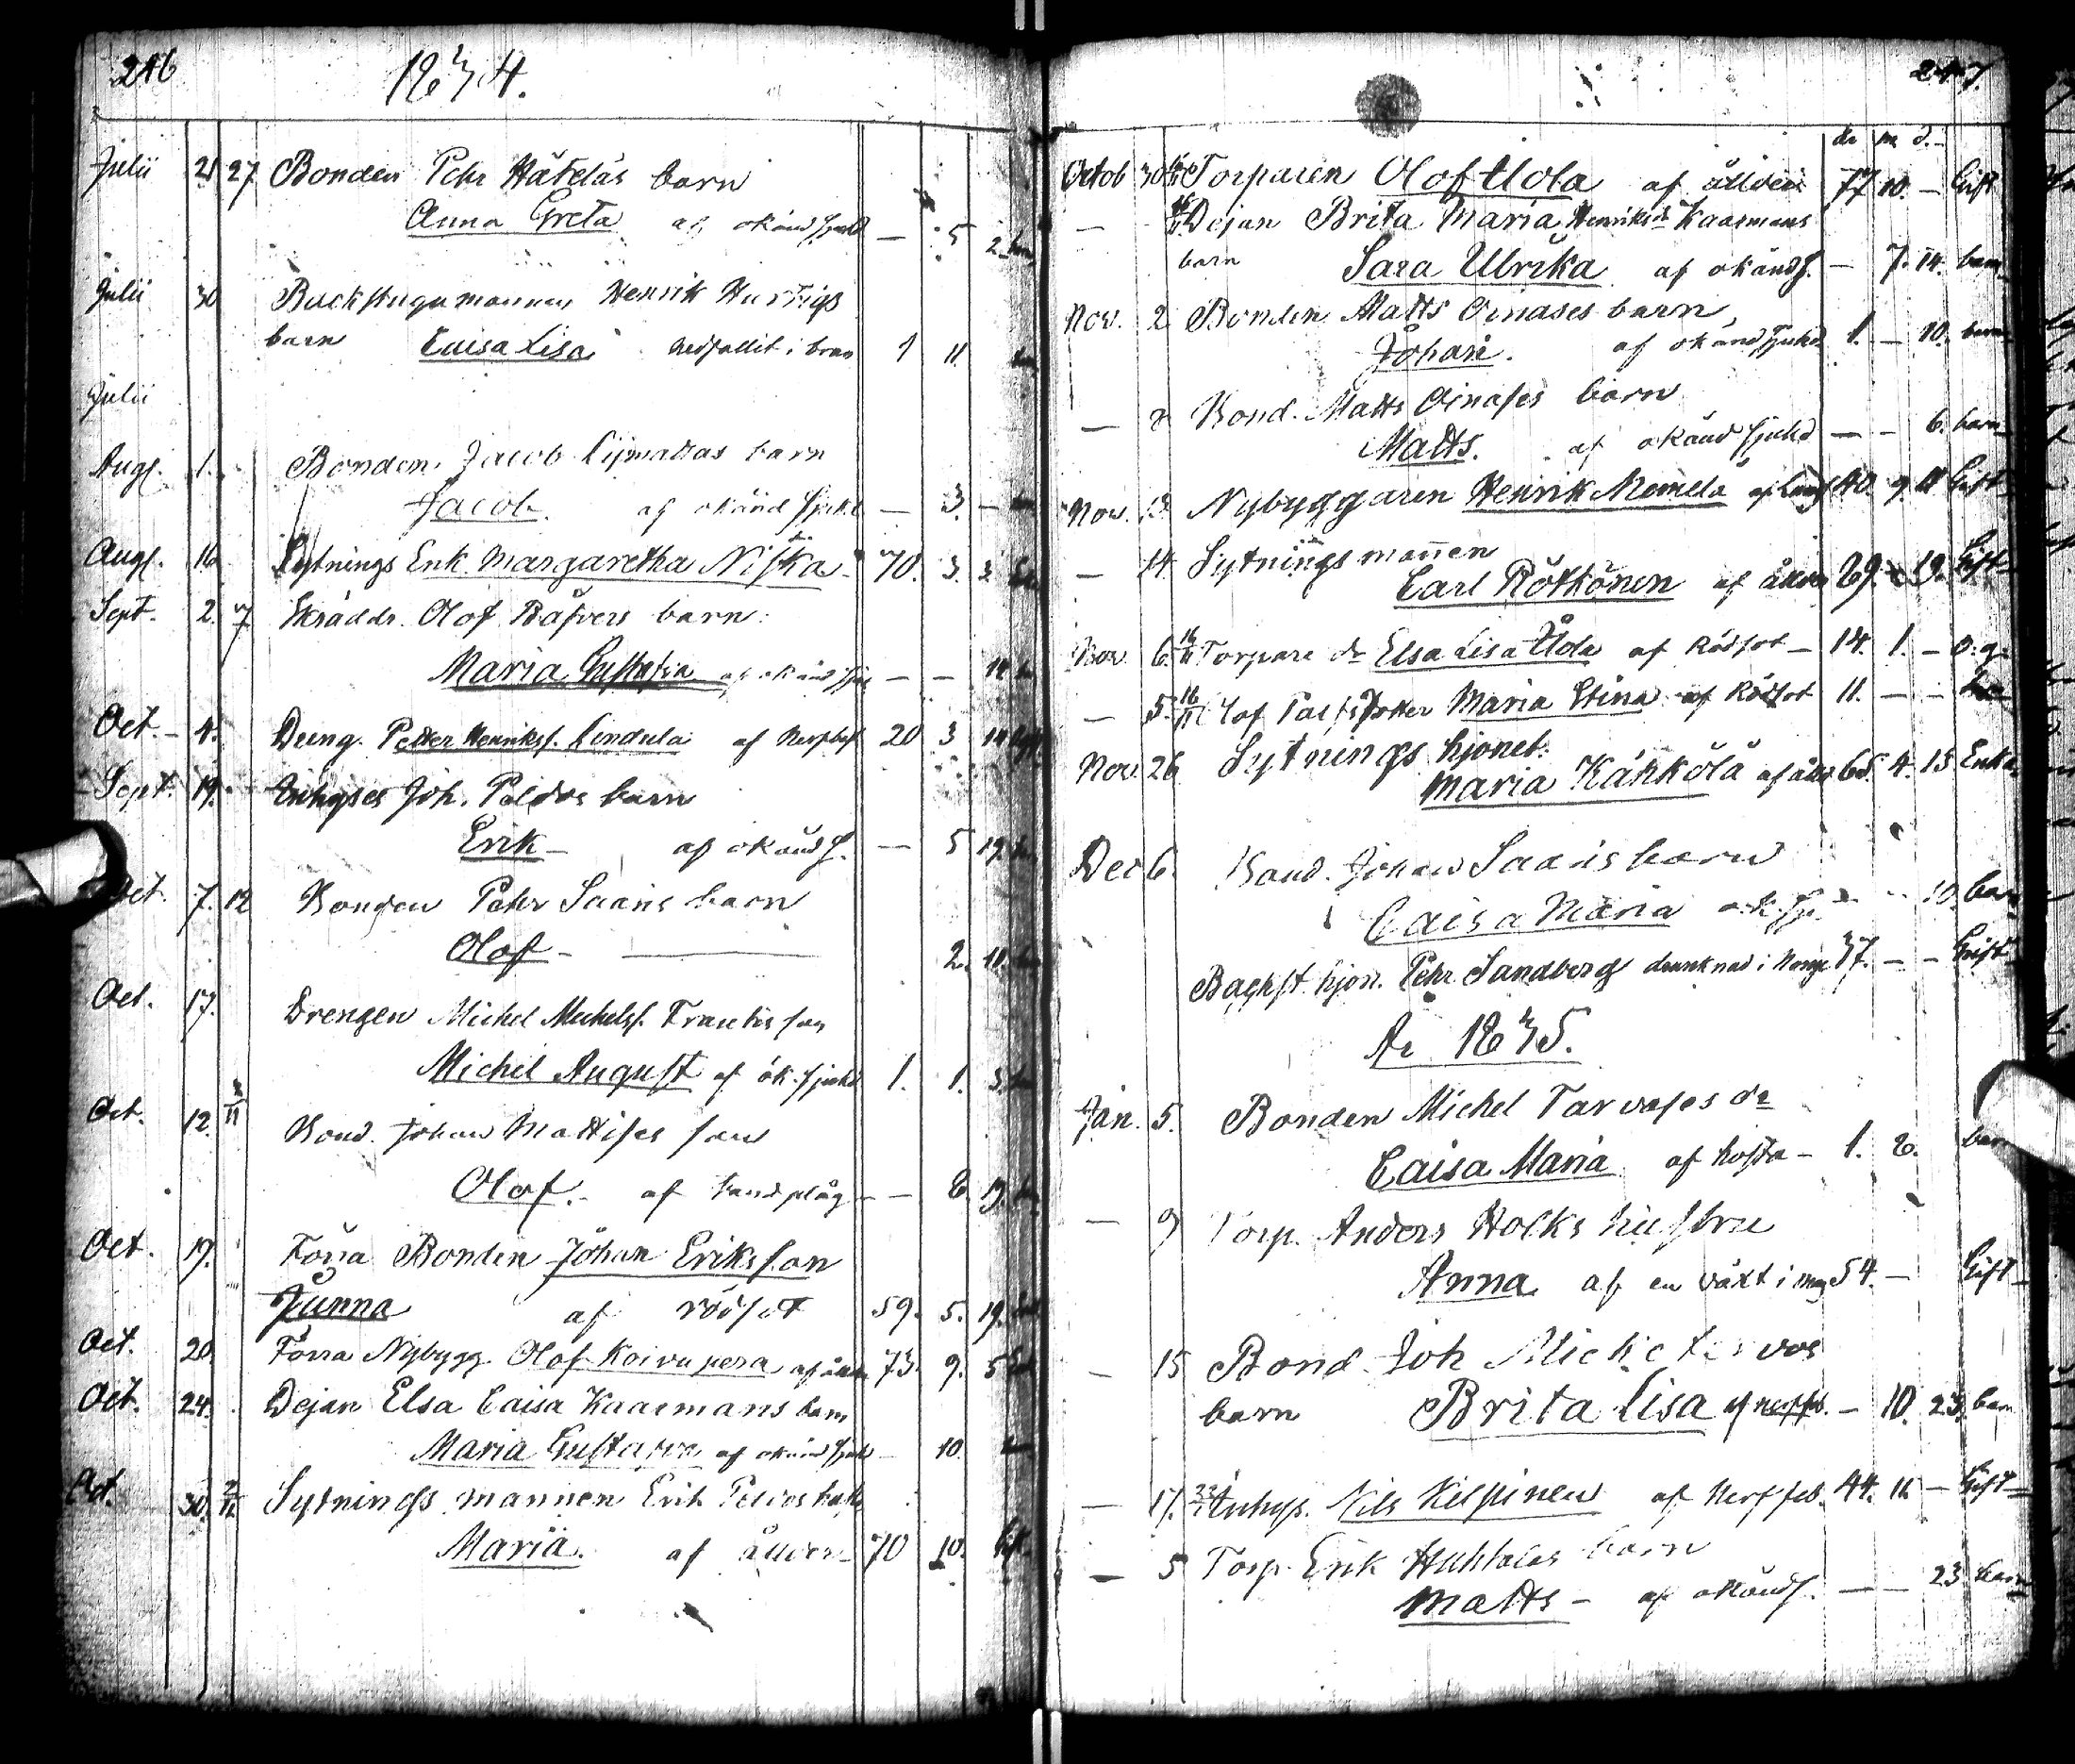 216
1834.
Julii 21 27 Bonden Pehr Häteläs barn
Anna Greta af okänd sjukd — 5 2 barn
Julii 30 Backstugumannen Henrik Hurtigs
barn Caisa Lisa nedfallit i brun 1 11
Julii
Aug. 1. Bonden Jacob barn
Jacob. af okänd sjukd — 3. —
Aug. 16 Sytnings Enk. Margaretha Niska 70. 3. 3.
Sept. 2. 7 Skräddr. Olof Bäfvers barn:
Maria Gustafva af okänd sjuk — — 14
Oct. 4. Dreng. Petter Henriks. Lindula af Nerfebr 20 3 14
Sept. 19. Inhyses Joh. Palovs barn
Erik — af okänd S. — 5 19.
Oct. 7. 12 Bonden Pehr Saaris barn
Olof — 2. 11.
Oct. 17. Drengen Michel Michels. son
Michel August af ok. sjukd 1. 1. 3.
Oct. 12. 2/11 Bond. Johan Mattises son
Olof. — af tandplåg — — 8. 19.
Oct. 19. Förra Bonden Johan Eriksson
Junna af rödsot 59. 5. 19.
Oct. 20. Förra Nybygg. Olof Koivupera af ålder 73. 9. 5
Oct. 24. Dejan Elsa Caisa Kaarmans barn
Maria Gustafva af okänd sjukd — 10.
Oct. 30. 2/11 Sytnings mannen Erik
Maria. af ålder 70 10. Gift.
217.
år m d.
Octob 30 Torparen Olof Uola af ålder 77 10. — Gift
— Dejan Brita Maria Henriksdr Kaarmans
barn Sara Ulrika af okänd S. — 7. 14. barn
Nov. 2 Bonden Matts Oinases barn
Johan. af okänd sjukd 1. — 10. barn
— 2 Bond. Matts Oinases barn
Matts. af okänd sjukd — — 6. barn
Nov. 13. Nybyggaren Henrik Memelä af 40. 9. 11 Gift
— 14. Sytningsmannen
Carl Rötkönen af ålder 69. 19. Gift
Nov. 6. 16/11 Torpare dr Elsa Lisa Uola af Rödsot — 14. 1. — o.g.
— 5. 16/11 dotter Maria Stina af Rödsot 11. — —
Nov 26 Sytnings hjonet.
Maria Kähkölä af åld 65. 4. 13 Enka
Dec 6. Bond. Johan Saaris barn
Caisa Maria ok. sj. — — 10. barn
Backst. hjon. Pehr Sandberg drunknad i Norge 37. — — Gift
År 1835.
Jan. 5. Bonden Michel Tarvases dr
Caisa Maria af hosta — 1. 8. barn
— 9 Torp. Anders Holks hustru
Anna af en växt i mag 54. — Gift
— 15 Bond. Joh
barn Brita Lisa af nerffeb. — 10. 23. barn
— 17. 23/1 Inhys. Nils Kilpinen af Nerffeb. 44. 11. — Gift
— 5 Torp. Erik Huhtalas barn
Matts — af okänd S. — — 23 barn